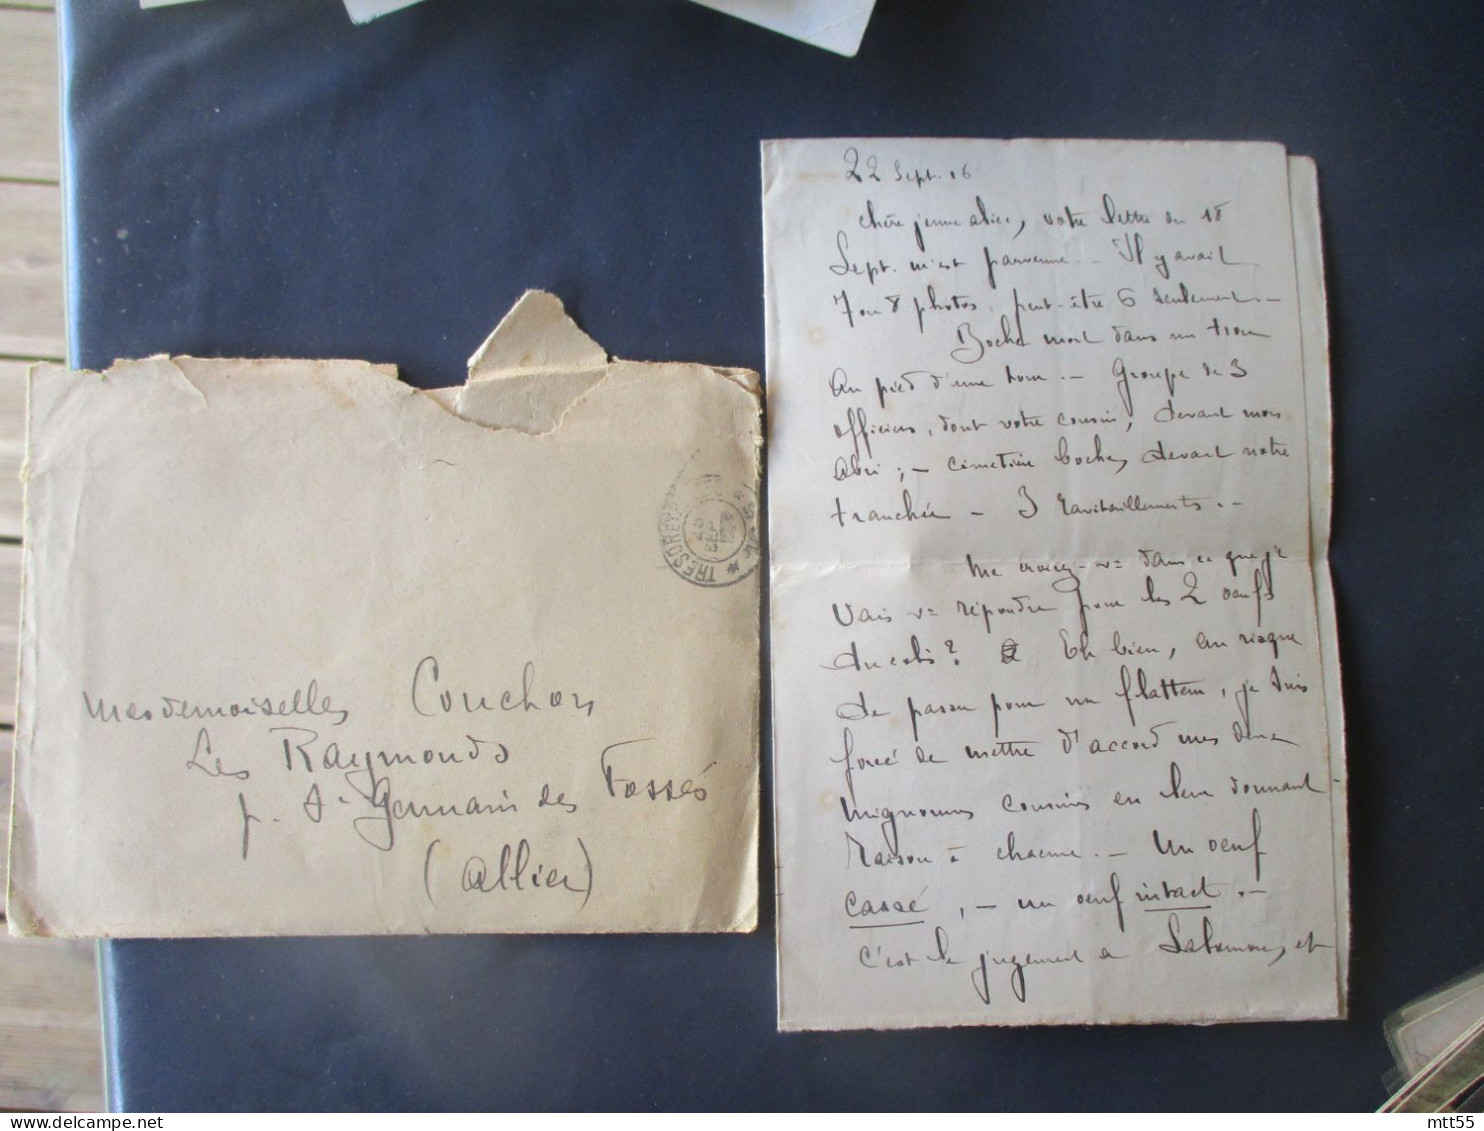 Mesdemoiselles Couchon
Les Raymonds
p. St Germain des Fossés
(Allier)
TRESOR ET
22 Sept. 16
Chère jeune alice, votre lettre du 18
Sept. m'est parvenue. - Il y avait
7 ou 8 photos, peut-être 6 seulement. -
Boche mort dans un trou
au pied d'une tour. - Groupe de 3
officiers, dont votre cousin, devant mon
abri ; - cimetière boche, devant notre
tranchée - 3 ravitaillements. -
Me croirez-vs dans ce que je
vais vs répondre pour les 2 oeufs
? Eh bien, au risque
de passer pour un flatteur, je suis
forcé de mettre d'accord mes deux
mignonnes cousines en leur donnant
raison à chacune. - Un oeuf
cassé, - un oeuf intact. -
C'est le jugement de Salomon, et
mtt55